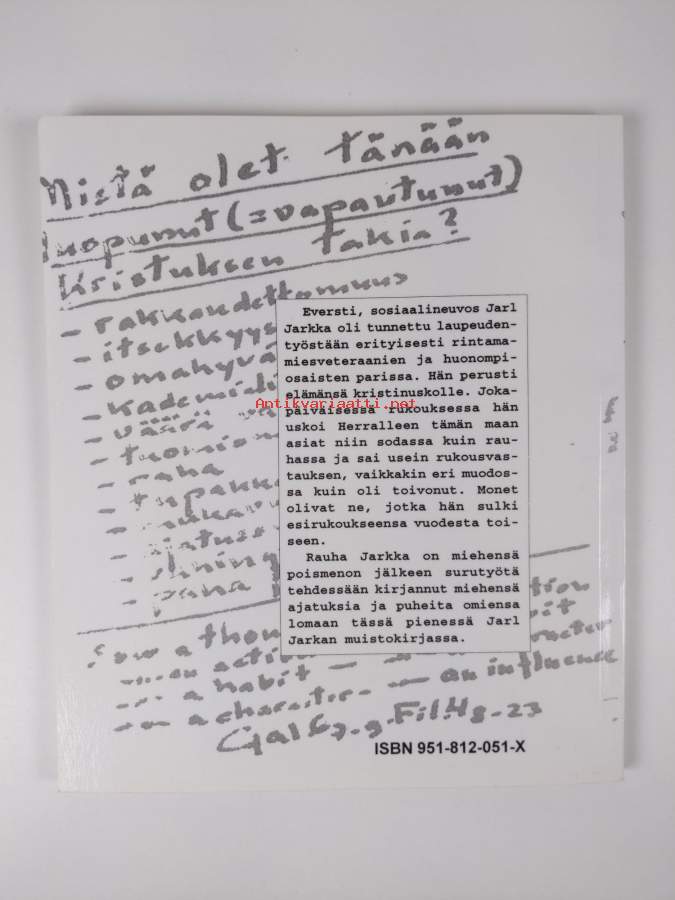 Mistä olet tänään
luopunut (=vapautunut)
Kristuksen takia?
- rakkaudettomuus
- itsekkyys
- omahyvä
- kademieli
- väärä
- tuomio
- raha
- tupakka
Eversti, sosiaalineuvos Jarl
Jarkka oli tunnettu laupeuden-
työstään erityisesti rintama-
miesveteraanien ja huonompi-
osaisten parissa. Hän perusti
elämänsä kristinuskolle. Joka-
päiväisessä rukouksessa hän
uskoi Herralleen tämän maan
asiat niin sodassa kuin rau-
hassa ja sai usein rukousvas-
tauksen, vaikkakin eri muodos-
sa kuin oli toivonut. Monet
olivat ne, jotka hän sulki
esirukoukseensa vuodesta toi-
seen.
Rauha Jarkka on miehensä
poismenon jälkeen surutyötä
tehdessään kirjannut miehensä
ajatuksia ja puheita omiensa
lomaan tässä pienessä Jarl
Jarkan muistokirjassa.
Antikvariaatti.net
Sow a thou
a habit
a character — an influence
Gal 6,7-9. Fil. 4,8-23
ISBN 951-812-051-X